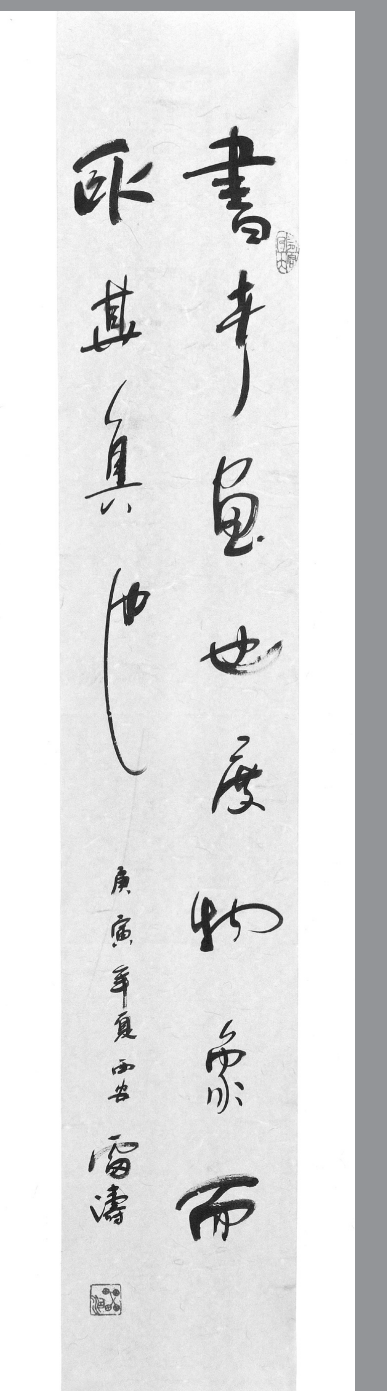 書者画也度物象而
取其真也
庚寅年夏西安雷濤